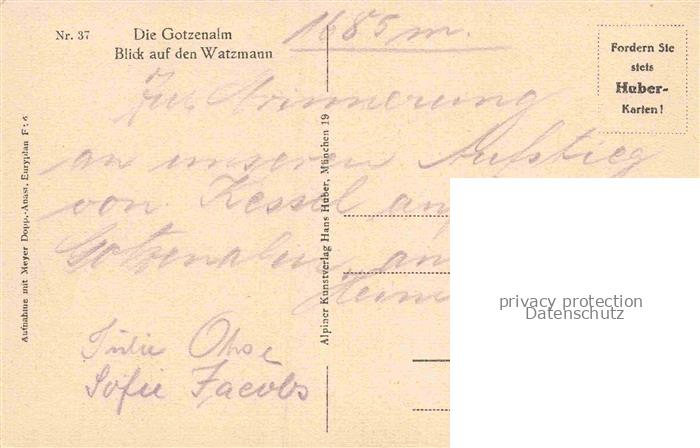 Nr. 37
Die Gotzenalm
Blick auf den Watzmann
1685 m.
Fordern Sie
stets
Huber-
Karten!
Zur Erinnerung
an unseren Aufstieg
von Kessel auf
Gotzenalm am
Aufnahme mit Meyer Dopp.-Anast. Euryplan F:6
Alpiner Kunstverlag Hans Huber, München 19
Julie Ohse
Sofie Jacobs
privacy protection
Datenschutz